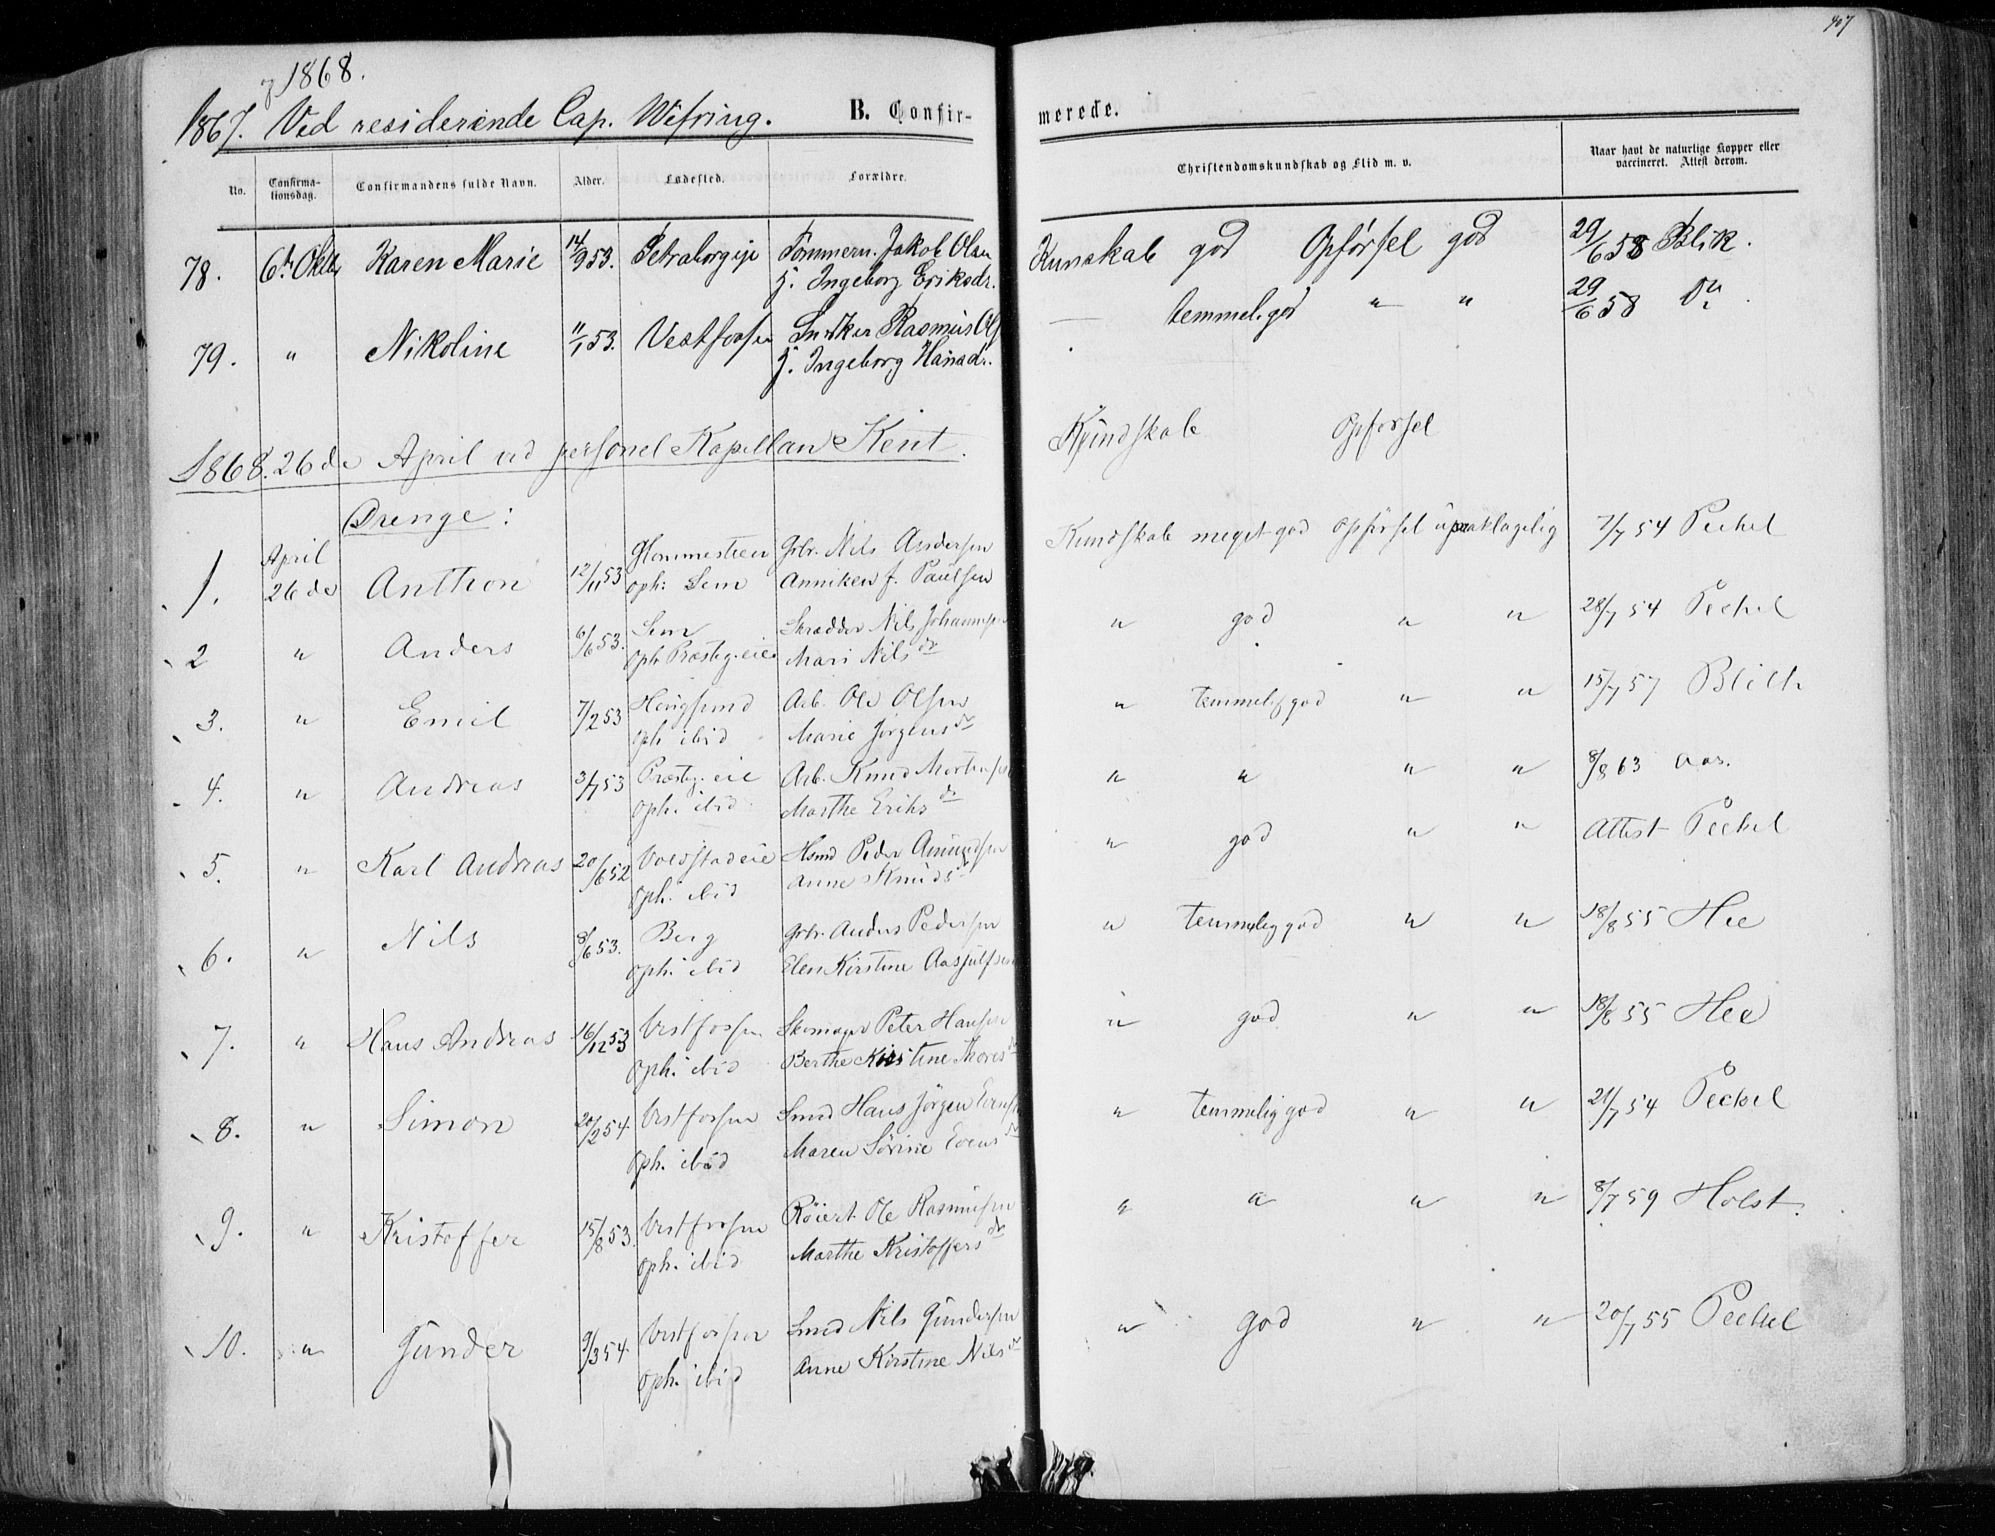 & 1868.
1867. Ved residerende Cap. Wefring. B. Confir-
merede.
407
No.
Confirma-
tionsdag.
Confirmandens fulde Navn.
Alder.
Fødested.
Forældre.
Christendomskundskab og Flid m. v.
Naar havt de naturlige Kopper eller
vaccineret. Attest derom.
78. 6te Oktb. Karen Marie 14/9 53. Tømmerm. Jakob Olsen Kunskab god Opførsel god 29/6 58 Blik.
f. Ingeborg Eriksdr.
79. " Nikoline 11/1 53. Vestfossen Snekker Rasmus Ols — temmel. god " " 29/6 58 Do
f. Ingeborg Hansdr.
1868. 26de April ved personel Kapellan Kent. Kundskab Opførsel
Drenge:
April Glommestien Gbr. Nils Andersen Kundskab meget god Opførsel upaaklagelig 7/7 54 Peckel
1. 26de Anthon 12/11 53 oph: Sem Anniken f. Paulsen
2 " Anders 6/6 53. Sem Skrædder Nils Johannsen " god " " 28/7 54 Peckel
oph. Præsteg. eie Mari Nilsdr
3. " Emil 7/2 53 Haugsund Arb. Ole Olsen " temmelig god " " 15/7 57 Blilk
oph ibid Marie Jørgensdr
4. " Andreas 3/7 53 Præsteg. eie Arb. Knud Mortensen " " " " 8/8 63 Aas.
oph. ibid Marthe Eriksdr
5. " Karl Andreas 20/6 52 Voldstadeie Hsmd Peder Amundsen " god " " Attest Peckel
oph. ibid Anne Knudsdr
6. " Nils 8/6 53. Berg Gbr. Anders Pedersen " temmelig god " " 18/8 55 Hee
oph. ibid Elen Kirstine Aasulfsen
7. " Hans Andreas 16/12 53 Vestfossen Skomager Peter Hansen " god " " 18/8 55 Hee
oph. ibid Berthe Kirstine Thoresdr
8. " Simon 20/2 54. Vestfossen Smed Hans Jørgen Evens " temmelig god " " 21/7 54 Peckel
oph. ibid Maren Sørine Evensdr
9. " Kristoffer 15/8 53. Vestfossen Røiert Ole Rasmusen " " " " 8/7 59 Holst.
oph. ibid Marthe Kristoffersdr
10. " Gunder 9/3 54. Vestfossen Smed Nils Gundersen " god " " 20/7 55 Peckel
oph. ibid Anne Kirstine Nilsdr